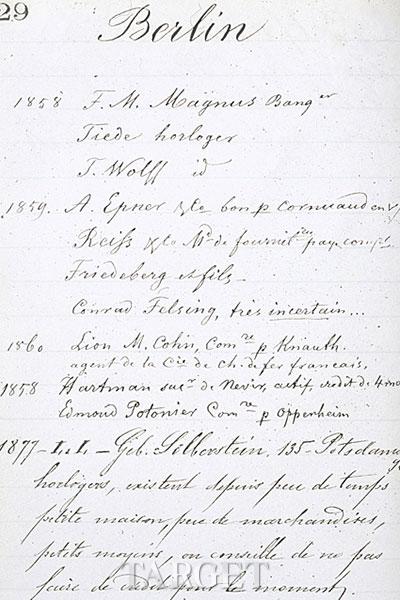 29
Berlin
1858 F. M. Magnus Banq er
Tiede horloger
T. Wolff id
1859. A. Epner & Ce bon p Cornuaud en
Reiss & Ce Md de fournit ures pay. compt
Friedeberg et fils
Conrad Felsing, très incertain...
1860 Lion M. Cohn, Com re p Knauth.
agent de la Cie de ch. de fer français,
1858 Hartman suc r de Nevir, actif, credit de 4 mo
Edmond Potonier Com re p Oppenheim
1877 - Geb. Selberstein, 135 Potsdamer
horlogers, existent depuis peu de temps
petite maison, peu de marchandises,
petits moyens, on conseille de ne pas
faire de crédit pour le moment.
TARGET